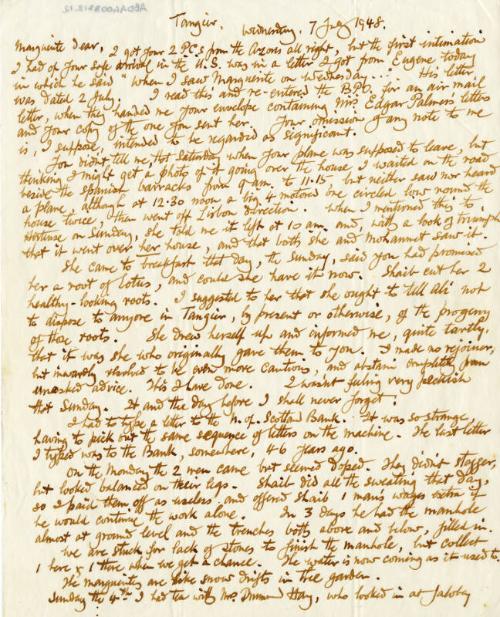 Tangier, Wednesday, 7 July 1948.
Marguerite dear, I got your 2 PCs from the Azores all right, but the first intimation
I had of your safe arrival in the U.S. was in a letter I got from Eugene today
in which he said "when I saw Marguerite on Wednesday....". His letter
was dated 2 July. I read this and re-entered the B.P.O. for an air mail
letter, when they handed me your envelope containing Mrs. Edgar Palmer's letters
and your copy of the one you sent her. Your omission of any note to me
is, I suppose, intended to be regarded as significant.
You didn't tell me, that Saturday when your plane was supposed to leave, but
thinking I might get a photo of it going over the house I waited on the road
beside the Spanish barracks from 9 am. to 11.15, but neither saw nor heard
a plane, although at 12.30 noon a big 4 motored one circled low round the
house twice, then went off Lisbon direction. When I mentioned this to
Hortense on Sunday, she told me it left at 10 am. and, with a look of triumph,
that it went over her house, and that both she and Mohammet saw it.
She came to breakfast that day, the Sunday, said you had promised
her a root of Lotus, and could she have it now. Shaib cut her 2
healthy-looking roots. I suggested to her that she ought to tell Ali not
to dispose to anyone in Tangier, by present or otherwise, of the progeny
of those roots. She drew herself up and informed me, quite tartly,
that it was she who originally gave them to you. I made no rejoinder,
but inwardly resolved to be even more cautious, and abstain completely from
unasked advice. This I have done. I wasn't feeling very peckish
that Sunday. It and the day before I shall never forget!
I had to type a letter to the N. of Scotland Bank. It was so strange,
having to pick out the same sequence of letters on the machine. The last letter
I typed was to the Bank, somewhere, 46 years ago.
On the Monday the 2 men came but seemed doped. They didn't stagger
but looked balanced on their legs. Shaib did all the sweating that day,
so I paid them off as useless and offered Shaib 1 man's wages extra if
he would continue the work alone. In 3 days he had the manhole
almost at ground level and the trenches both above and below, filled in.
We are stuck for lack of stones to finish the manhole, but collect
1 here & 1 there when we get a chance. The water is now coming as it used to.
The marguerites are like snow drifts in the garden.
Sunday the 4th I had tea with Mrs. Drummond Hay, who looked in at